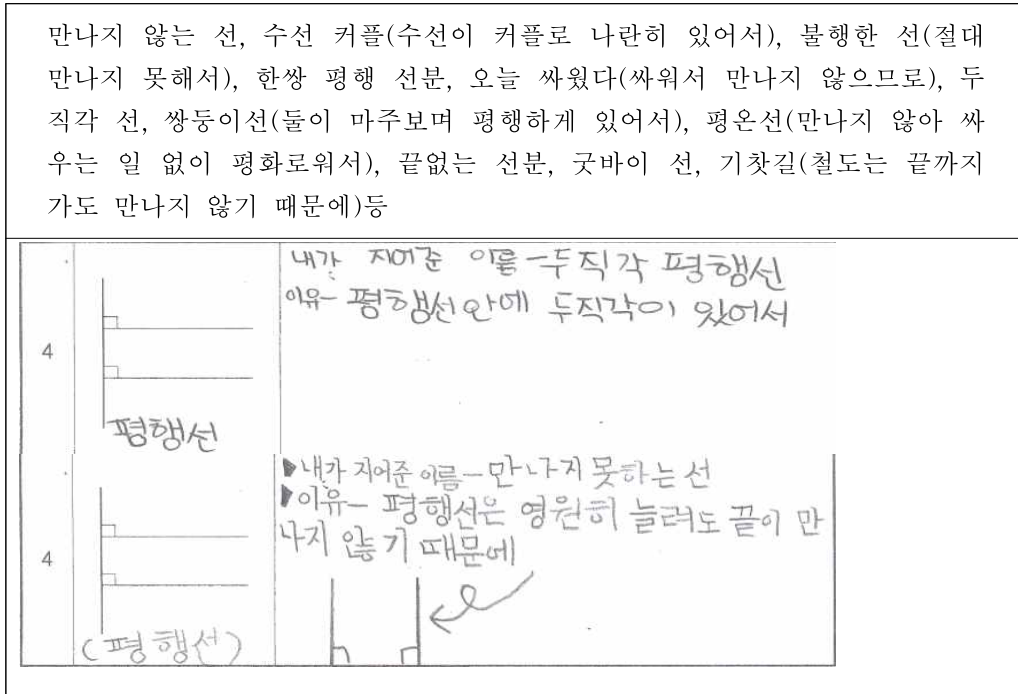 만나지 않는 선, 수선 커플(수선이 커플로 나란히 있어서), 불행한 선(절대
만나지 못해서), 한쌍 평행 선분, 오늘 싸웠다(싸워서 만나지 않으므로), 두
직각 선, 쌍둥이선(둘이 마주보며 평행하게 있어서), 평온선(만나지 않아 싸
우는 일 없이 평화로워서), 끝없는 선분, 굿바이 선, 기찻길(철도는 끝까지
가도 만나지 않기 때문에)등
4
평행선
내가 지어준 이름-두직각 평행선
이유- 평행선안에 두직각이 있어서
4
(평행선)
▶내가 지어준 이름-만나지 못하는 선
▶이유- 평행선은 영원히 늘려도 끝이 만
나지 않기 때문에